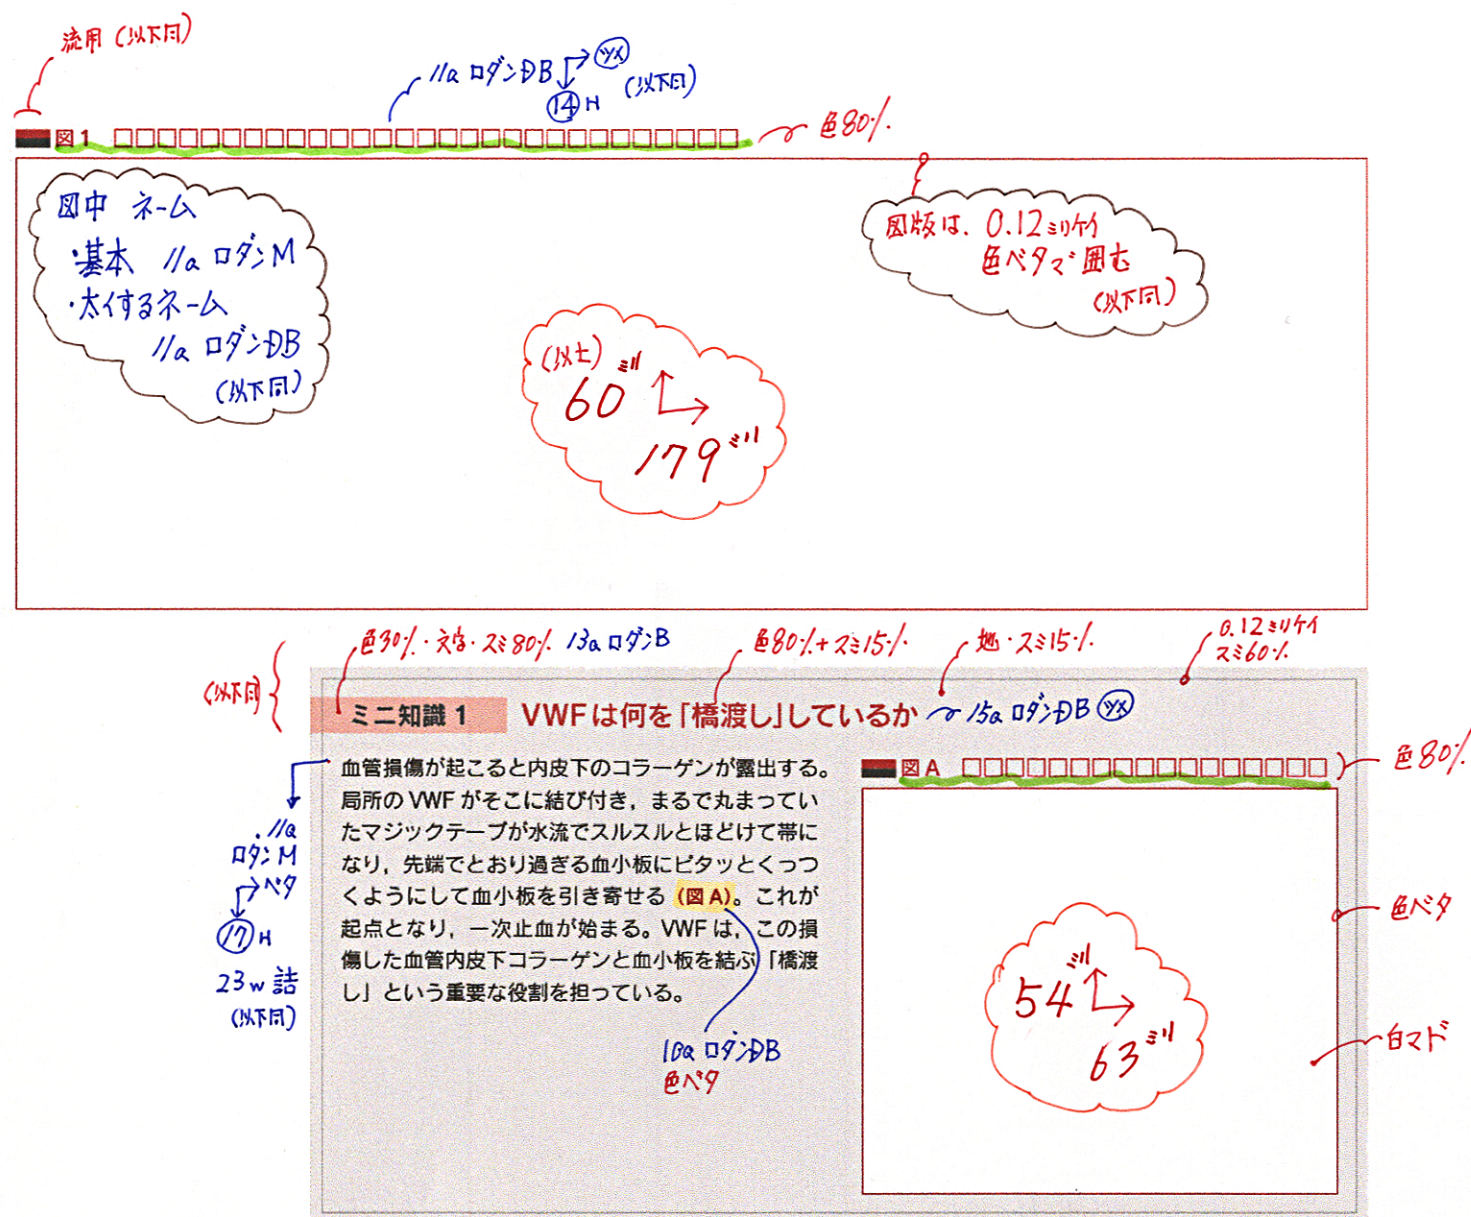 流用(以下同)
11a ロダンDB → ツメ
↓ 14 H (以下同)
図1 □□□□□□□□□□□□□□□□□□□□□□□□□□□□□
色80%
図中 ネーム
・基本 11a ロダンM
・太くするネーム
11a ロダンDB
(以下同)
図版は、0.12ミリケイ
色ベタで囲む
(以下同)
(以上)
60ミリ
179ミリ
(以下同)
色30%・文字・スミ80% 13a ロダンB
色80%+スミ15%
地・スミ15%
0.12ミリケイ
スミ60%
ミニ知識1
VWFは何を「橋渡し」しているか
15a ロダンDB ツメ
血管損傷が起こると内皮下のコラーゲンが露出する。
局所のVWFがそこに結び付き,まるで丸まってい
たマジックテープが水流でスルスルとほどけて帯に
なり,先端でとおり過ぎる血小板にピタッとくっつ
くようにして血小板を引き寄せる(図A)。これが
起点となり,一次止血が始まる。VWFは,この損
傷した血管内皮下コラーゲンと血小板を結ぶ「橋渡
し」という重要な役割を担っている。
11a
ロダンM
→ベタ
↓
17 H
23w詰
(以下同)
10a ロダンDB
色ベタ
図A □□□□□□□□□□□□□□□□□
色80%
色ベタ
54ミリ
63ミリ
白マド